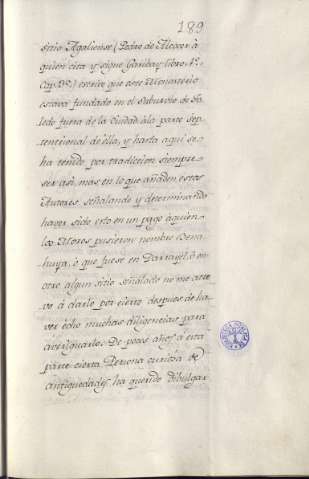 189
sitio Agaliense (Pedro de Alcocer à
quien cita y sigue Garibay libro 8º.
Cap.) escrive que este Monasterio
estava fundado en el Suburbio de To-
ledo fuera de la Ciudad àla parte sep-
tentrional de ella, y hasta aquí se
ha tenido por tradicion siempre
ser asi, mas en lo que añaden estos
Autores, señalando y determinando
haver sido esto en un pago àquien
los Moros pusieron nombre Bena-
huya, ò que fuese en Darrayel, ò en
otro algun sitio señalado no me atre-
vo à darlo por cierto despues de ha-
ver echo muchas diligencias para
averiguarlo. De pocos años à esta
parte cierta Persona curiosa de
antiguedades, ha querido dibulgar